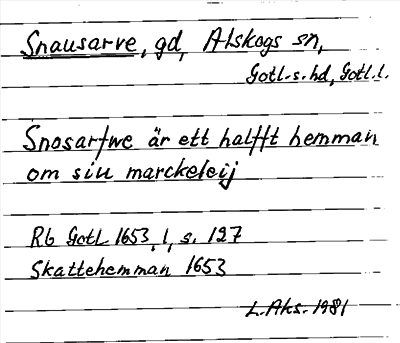 Snausarve, gd, Alskogs sn,
Gotl. s. hd, Gotl. l.
Snosarfwe är ett halfft hemman
om siu marckeleij
Rb Gotl 1653, 1, s. 127
Skattehemman 1653
L. Aks. 1981